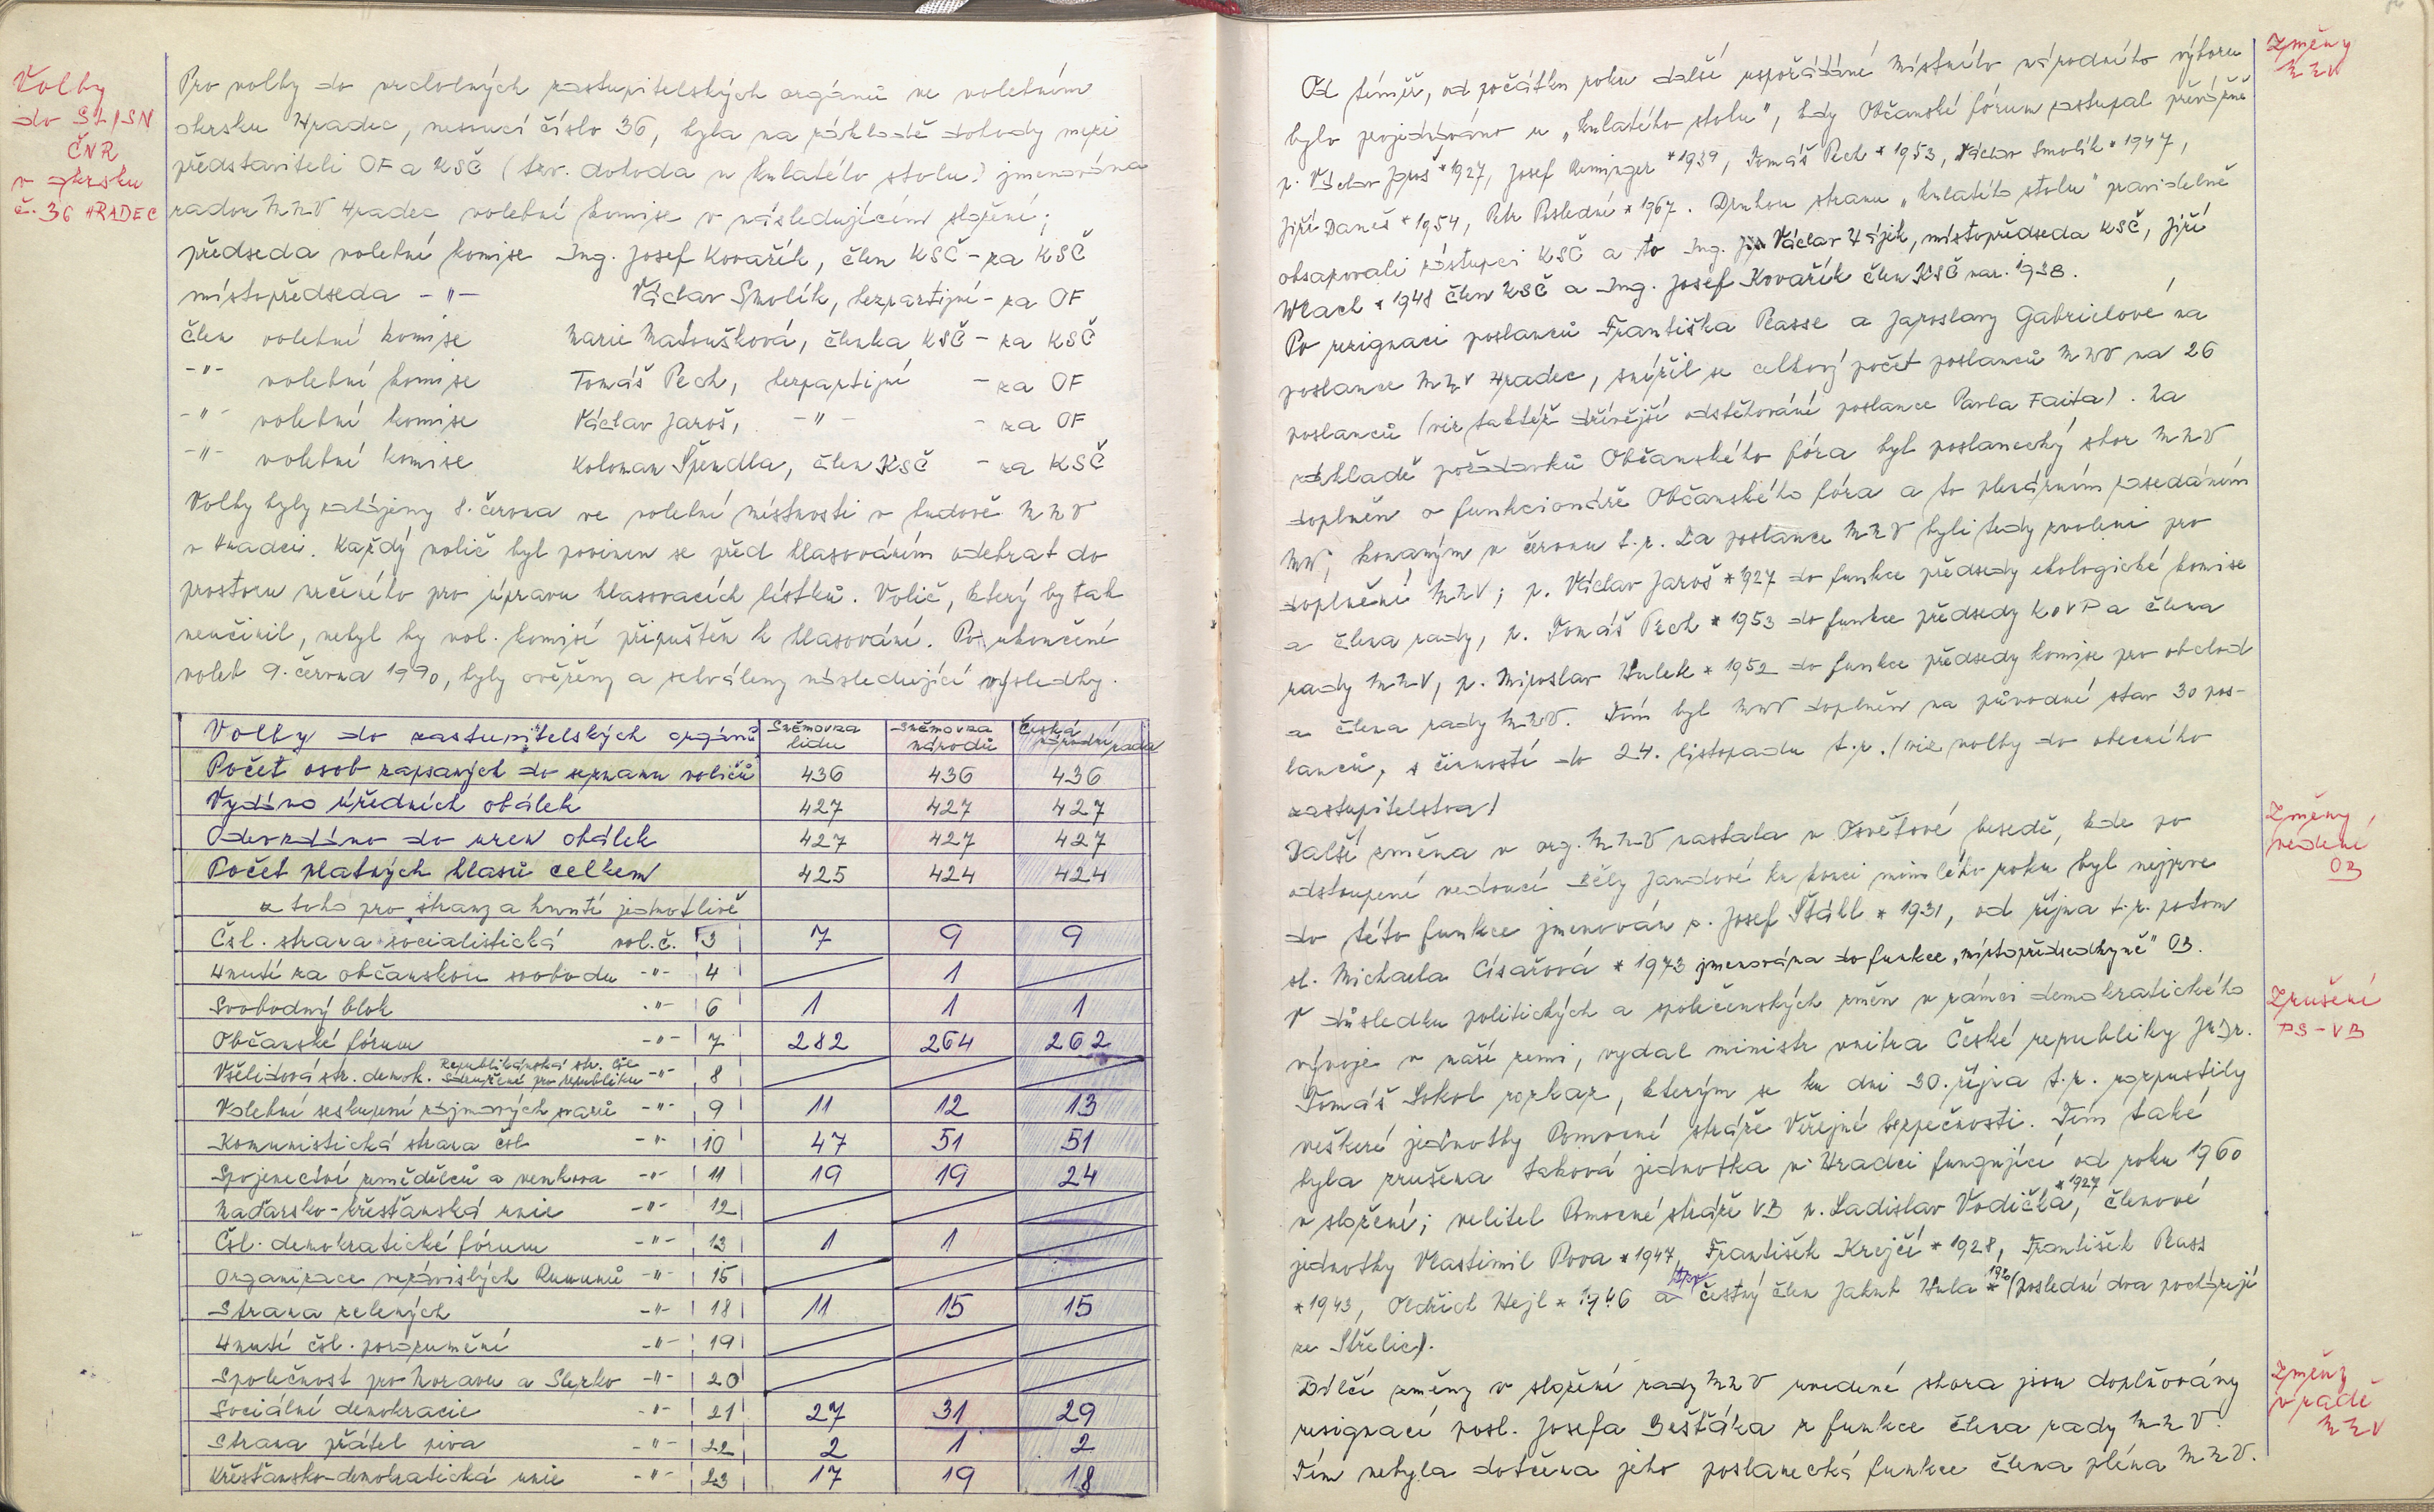 Volby
do SL, SN
ČNR
v okrsku
č. 36 HRADEC
Pro volby do vrcholných zastupitelských orgánů ve volebním
okrsku Hradec, nesoucí číslo 36, byla na základě dohody mezi
představiteli OF a KSČ (tzv. dohoda u kulatého stolu) jmenována
radou MNV Hradec volební komise v následujícím složení;
předseda volební komise Ing. Josef Kovařík, člen KSČ - za KSČ
místopředseda -"- Václav Smolík, bezpartijní - za OF
člen volební komise Marie Matoušková, členka KSČ - za KSČ
-"- volební komise Tomáš Pech, bezpartijní - za OF
-"- volební komise Václav Jaroš, -"- - za OF
-"- volební komise Koloman Špendla, člen KSČ - za KSČ
Volby byly zahájeny 8. června ve volební místnosti v budově MNV
v Hradci. Každý volič byl povinen se před hlasováním odebrat do
prostoru určeného pro úpravu hlasovacích lístků. Volič, který by tak
neučinil, nebyl by vol. komisí připuštěn k hlasování. Po ukončení
voleb 9. června 1990, byly ověřeny a schváleny následující výsledky.
Volby do zastupitelských orgánů Sněmovna lidu Sněmovna národů Česká národní rada
Počet osob zapsaných do seznamu voličů 436 436 436
Vydáno úředních obálek 427 427 427
Odevzdáno do uren obálek 427 427 427
Počet platných hlasů celkem 425 424 424
z toho pro strany a hnutí jednotlivě
Čsl. strana socialistická vol. č. 3 7 9 9
Hnutí za občanskou svobodu -"- 4 1
Svobodný blok -"- 6 1 1 1
Občanské fórum -"- 7 282 264 262
Všelidová str. demok. Republikánská str. Čsl. Sdružení pro republiku -"- 8
Volební seskupení zájmových svazů -"- 9 11 12 13
Komunistická strana čsl. -"- 10 47 51 51
Spojenectví zemědělců a venkova -"- 11 19 19 24
Maďarsko-křesťanská unie -"- 12
Čsl. demokratické fórum -"- 13 1 1
Organizace nezávislých Rumunů -"- 15
Strana zelených -"- 18 11 15 15
Hnutí čsl. porozumění -"- 19
Společnost pro Moravu a Slezko -"- 20
Sociální demokracie -"- 21 27 31 29
Strana přátel piva -"- 22 2 1 2
Křesťansko-demokratická unie -"- 23 17 19 18
Změny
MNV
Od téměř, od počátku roku další uspořádání Místního národního výboru
bylo projednáváno u „kulatého stolu", kdy Občanské fórum zastupal převážně
p. Václav Jaroš *1927, Josef Reminger *1939, Tomáš Pech *1953, Václav Smolík *1947,
Jiří Daneš *1954, Petr Poslední *1967. Druhou stranu „kulatého stolu" pravidelně
obsazovali zástupci KSČ a to Ing. Václav Hájek, místopředseda KSČ, Jiří
Wlach *1948 člen KSČ a Ing. Josef Kovařík člen KSČ nar. 1938.
Po rezignaci poslanců Františka Rasse a Jaroslavy Gabrielové na
poslance MNV Hradec, snížil se celkový počet poslanců MNV na 26
poslanců (viz taktéž dřívější odstěhování poslance Pavla Faita). Na
základě požadavků Občanského fóra byl poslanecký sbor MNV
doplněn o funkcionáře Občanského fóra a to plenárním zasedáním
MNV, konaným v červnu t.r. Za poslance MNV byli tedy zvoleni pro
doplnění MNV; p. Václav Jaroš *1927 do funkce předsedy ekologické komise
a člena rady, p. Tomáš Pech *1953 do funkce předsedy KOVP a člena
rady MNV, p. Miroslav Hulek *1952 do funkce předsedy komise pro obchod
a člena rady MNV. Tím byl MNV doplněn na původní stav 30 pos-
lanců, s činností do 24. listopadu t.r. (viz volby do obecního
zastupitelstva)
Změny,
vedení
OB
Další změna v org. MNV nastala v Osvětové besedě, kde po
odstoupení vedoucí Běly Jandové ku konci minulého roku byl nejprve
do této funkce jmenován p. Josef Štáhl *1931, od října t.r. potom
sl. Michaela Císařová *1973 jmenována do funkce „místopředsedkyně" OB.
Zrušení
PS-VB
V důsledku politických a společenských změn v rámci demokratického
vývoje v naší zemi, vydal ministr vnitra České republiky JUDr.
Tomáš Sokol rozkaz, kterým se ku dni 30. října t.r. rozpustily
veškeré jednotky Pomocné stráže Veřejné bezpečnosti. Tím také
byla zrušena taková jednotka v Hradci fungující od roku 1960
v složení; velitel Pomocné stráže VB p. Ladislav Vodička *1927, členové
jednotky Vlastimil Rova *1947, František Krejčí *1928, František Rass
*1943, Oldřich Hejl *1946 a čestný člen Jakub Hula * (poslední dva pocházejí
ze Střelic).
Změny
v radě
MNV
Dílčí změny v složení rady MNV uvedené shora jsou doplňovány
resignací posl. Josefa Bešťáka z funkce člena rady MNV.
Tím nebyla dotčena jeho poslanecká funkce člena pléna MNV.